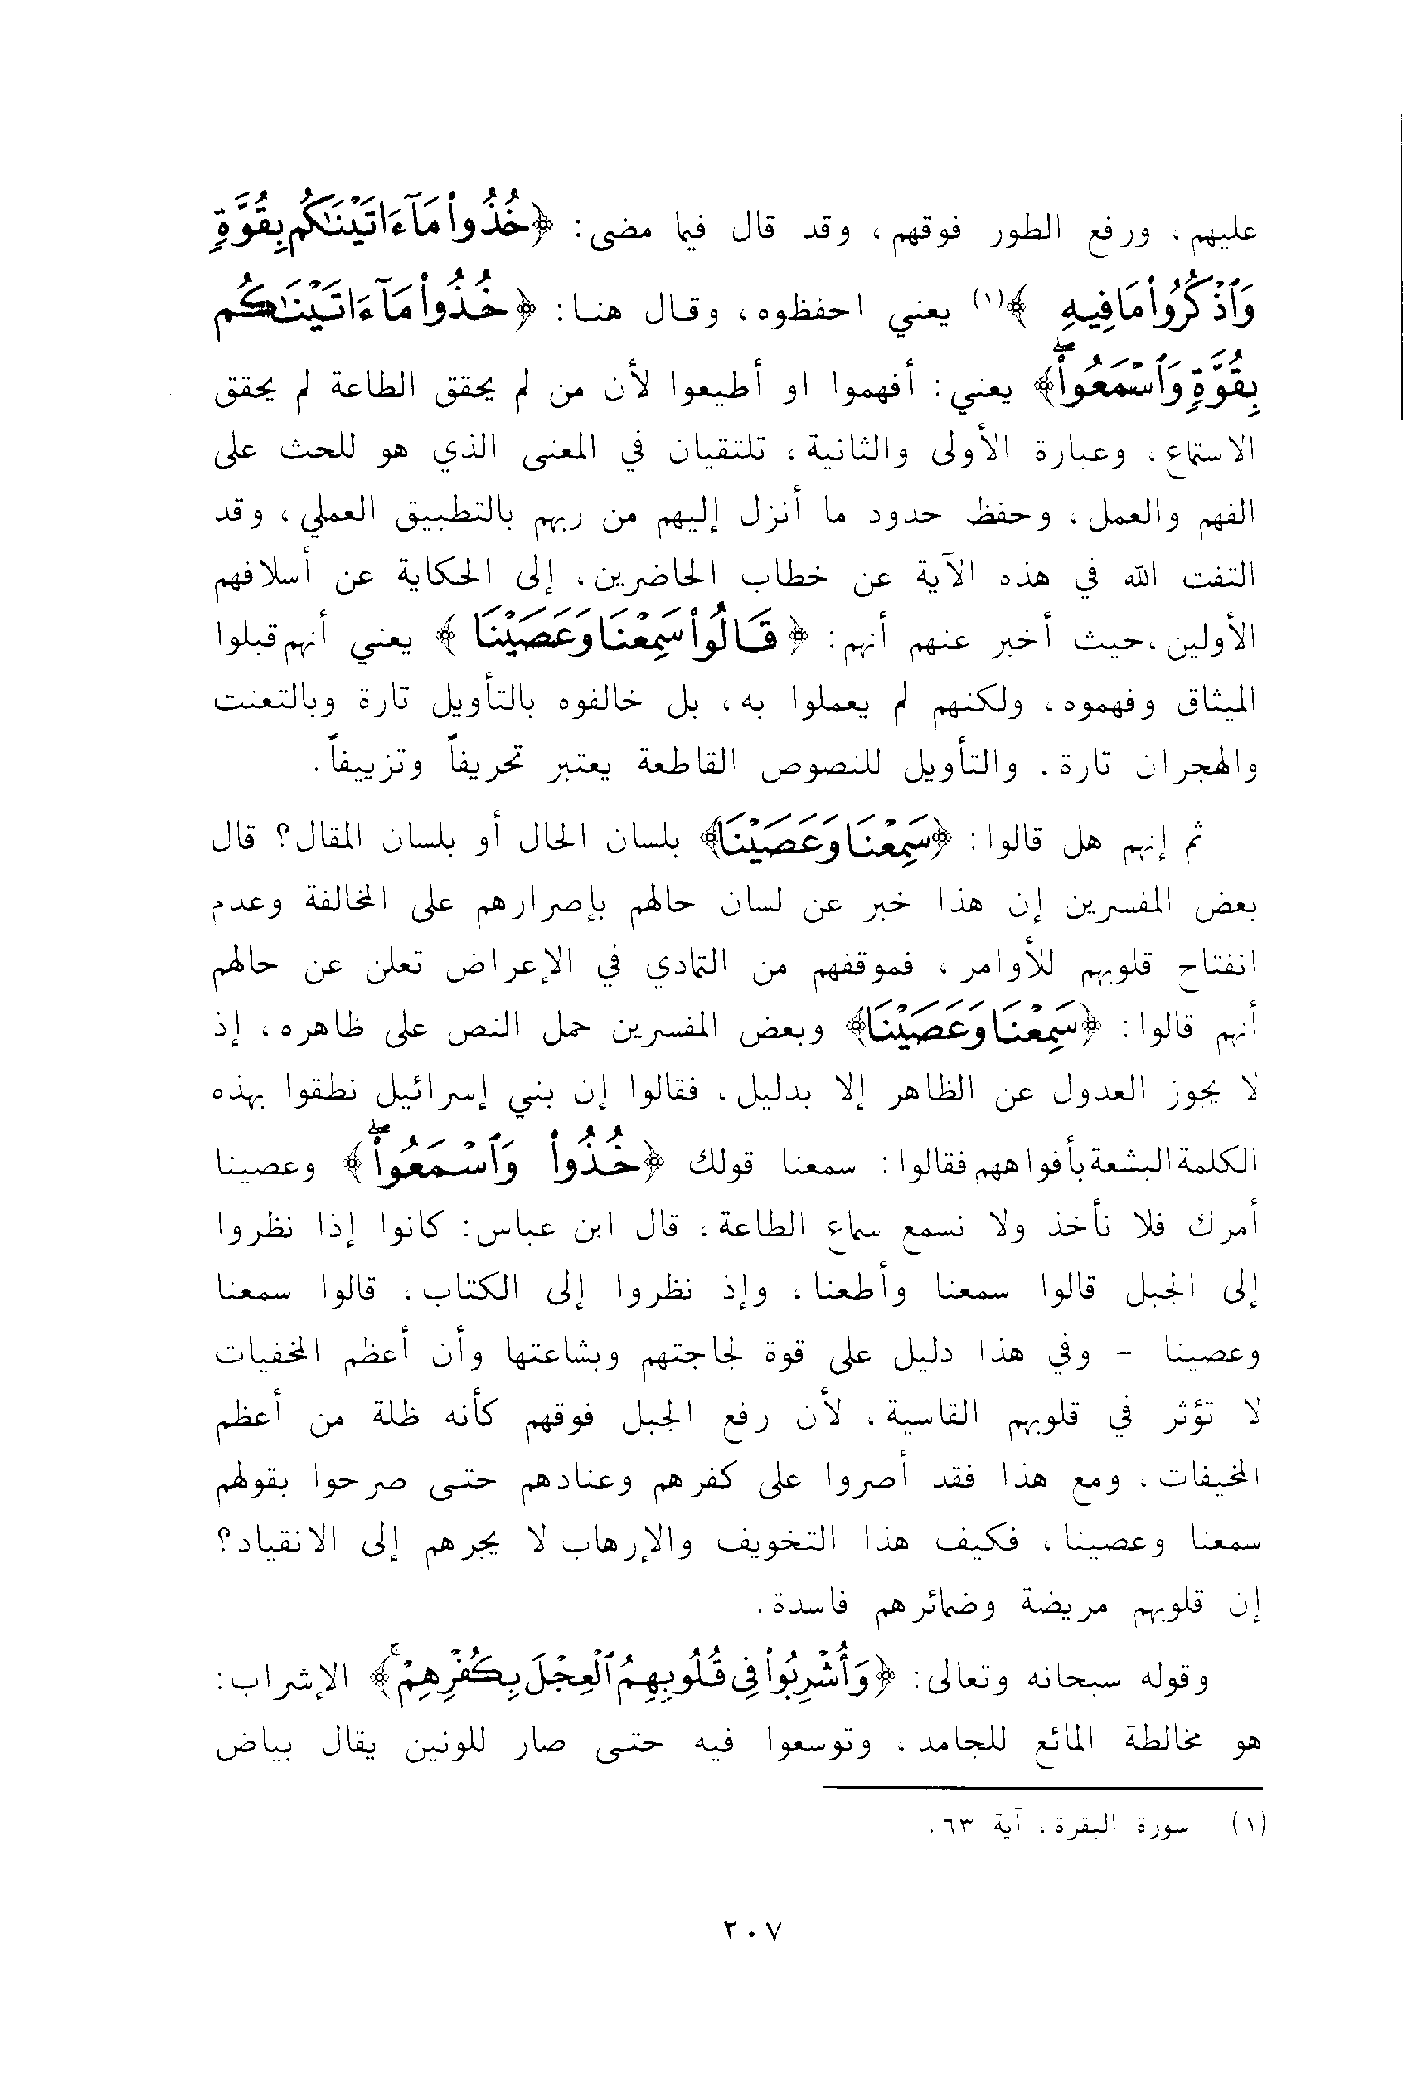 عليهم، ورفع الطور فوقهم، وقد قال فيما مضى: ﴿خُذُوا۟ مَآ ءَاتَيْنَـٰكُم بِقُوَّةٍ
وَٱذْكُرُوا۟ مَا فِيهِ ﴾(١) يعني احفظوه، وقال هنا: ﴿خُذُوا۟ مَآ ءَاتَيْنَـٰكُم
بِقُوَّةٍ وَٱسْمَعُوا۟ۖ﴾ يعني: أفهموا او أطيعوا لأن من لم يحقق الطاعة لم يحقق
الاستماع، وعبارة الأولى والثانية، تلتقيان في المعنى الذي هو للحث على
الفهم والعمل، وحفظ حدود ما أنزل إليهم من ربهم بالتطبيق العملي، وقد
التفت الله في هذه الآية عن خطاب الحاضرين، إلى الحكاية عن أسلافهم
الأولين، حيث أخبر عنهم أنهم: ﴿قَالُوا۟ سَمِعْنَا وَعَصَيْنَا ﴾ يعني أنهم قبلوا
الميثاق وفهموه، ولكنهم لم يعملوا به، بل خالفوه بالتأويل تارة وبالتعنت
والهجران تارة. والتأويل للنصوص القاطعة يعتبر تحريفاً وتزييفاً.
ثم إنهم هل قالوا: ﴿سَمِعْنَا وَعَصَيْنَا﴾ بلسان الحال أو بلسان المقال؟ قال
بعض المفسرين إن هذا خبر عن لسان حالهم بإصرارهم على المخالفة وعدم
انفتاح قلوبهم للأوامر، فموقفهم من التمادي في الإعراض تعلن عن حالهم
أنهم قالوا: ﴿سَمِعْنَا وَعَصَيْنَا﴾ وبعض المفسرين حمل النص على ظاهره، إذ
لا يجوز العدول عن الظاهر إلا بدليل، فقالوا إن بني إسرائيل نطقوا بهذه
الكلمة البشعة بأفواههم فقالوا: سمعنا قولك ﴿خُذُوا۟ وَٱسْمَعُوا۟ۖ﴾ وعصينا
أمرك فلا نأخذ ولا نسمع سماع الطاعة، قال ابن عباس: كانوا إذا نظروا
إلى الجبل قالوا سمعنا وأطعنا، وإذ نظروا إلى الكتاب، قالوا سمعنا
وعصينا - وفي هذا دليل على قوة لجاجتهم وبشاعتها وأن أعظم المخفيات
لا تؤثر في قلوبهم القاسية، لأن رفع الجبل فوقهم كأنه ظلة من أعظم
المخيفات، ومع هذا فقد أصروا على كفرهم وعنادهم حتى صرحوا بقولهم
سمعنا وعصينا، فكيف هذا التخويف والإرهاب لا يجرهم إلى الانقياد؟
إن قلوبهم مريضة وضمائرهم فاسدة.
وقوله سبحانه وتعالى: ﴿وَأُشْرِبُوا۟ فِى قُلُوبِهِمُ ٱلْعِجْلَ بِكُفْرِهِمْۚ﴾ الإشراب:
هو مخالطة المائع للجامد، وتوسعوا فيه حتى صار للونين يقال بياض
(١) سورة البقرة، آية ٦٣.
٢٠٧